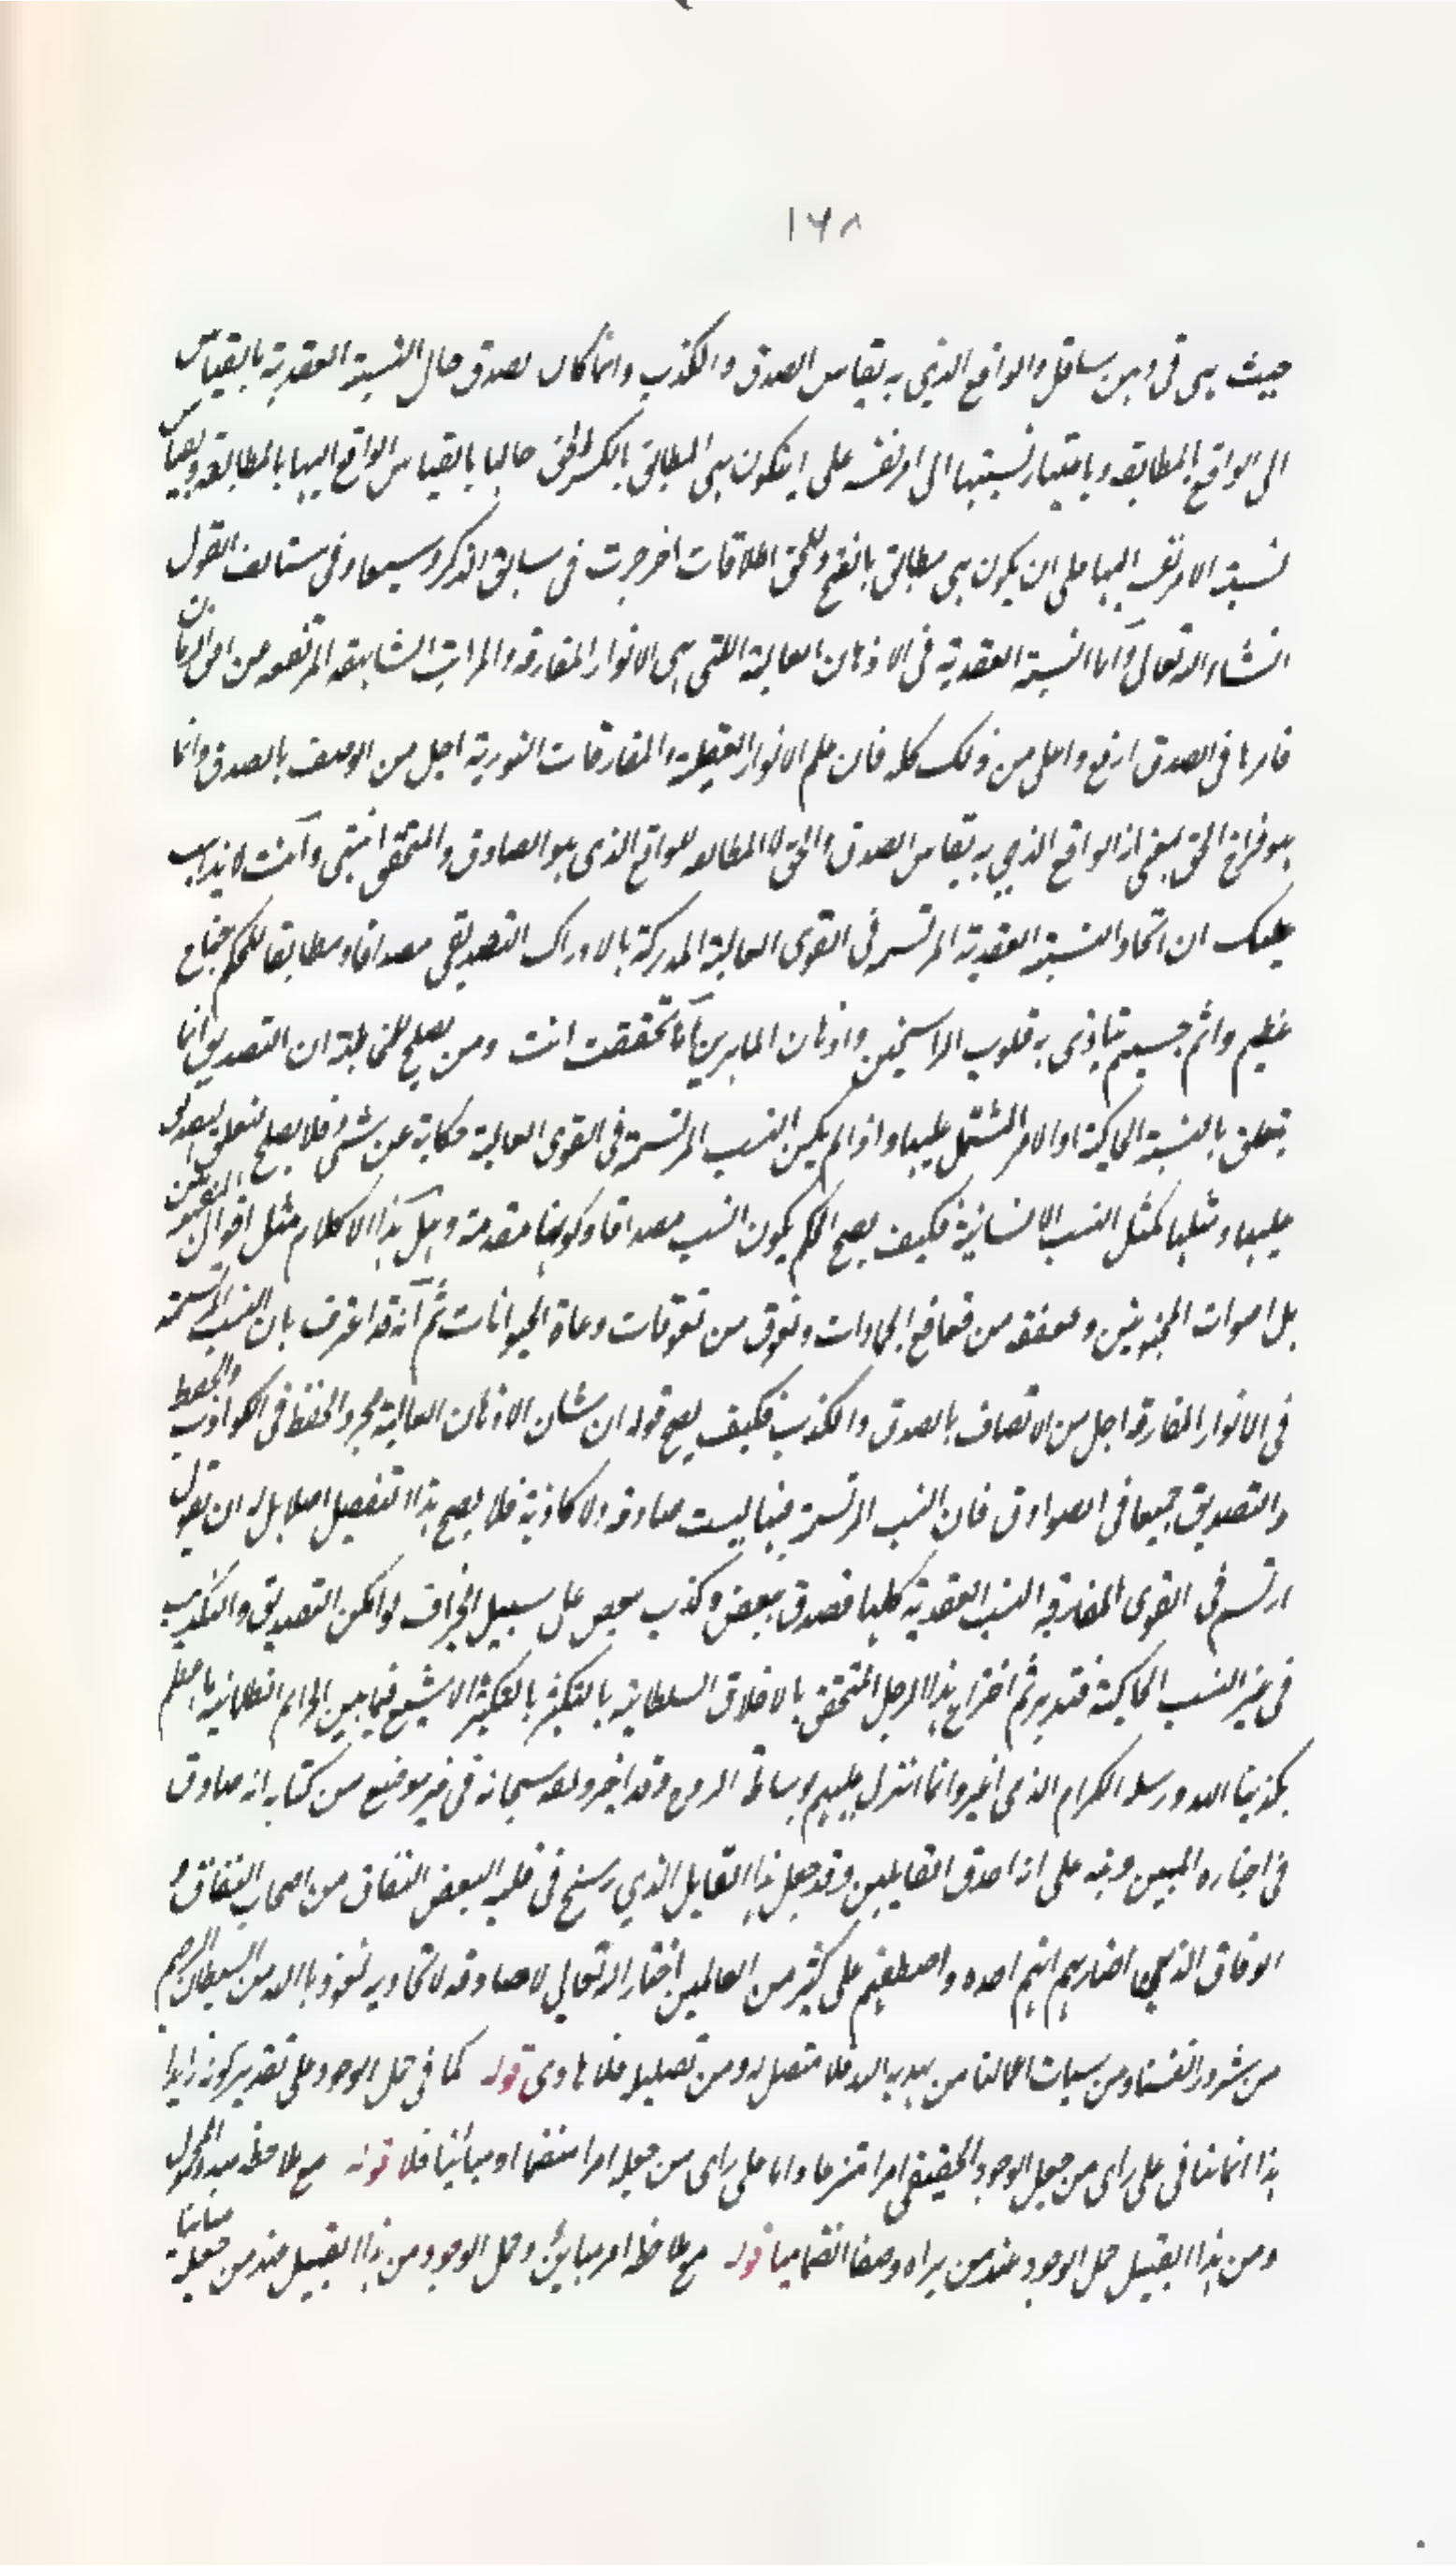 ١٦٨
حيث هي في ذهن سافل والواقع الذي به يقاس الصدق والكذب وانما كان لصدق حال النسبة العقدية بالقياس
الى الواقع بالمطابقة وباعتبار نسبتها الى امر نفسه على ان يكون هي المطابق بالكسر والحق حالها بالقياس الواقع اليها بالمطابقة وبقياس
نسبة الامر نفسه اليها على ان يكون هي مطابق بالفتح وللحق اطلاقات اخر جرت في سابق الذكر وسيعاد في مستانف القول
انشاء الله تعالى واما النسبة العقدية في الاذهان العالية اللتي هي الانوار المفارقة والمراتب الشاهقة المرتفعة من افق الزمان
فامرها في الصدق ارفع واعلى من ذلك كله فان علم الانوار العقلية والمفارقات النورية اجل من الوصف بالصدق وانما
هو فراخ الحق بمعنى انه الواقع الذي به يقاس الصدق والحق لا المطابقة للواقع الذي هو الصادق والتحقق انتهى وانت لا يذهب
عليك ان اتحاد النسبة العقدية المرتسمة في القوى العالية المدركة بالادراك التصديقي مصداقا ومطابقا للحكم جناح
عظيم واثم جسيم يتاذى به قلوب الراسخين واذهان الماهرين اما تحققت انت ومن يصلح للمخاطبة ان التصديق انما
يتعلق بالنسبة الحاكية او الامر المشتمل عليها واذا لم يكن النسب المرتسمة في القوى العالية حكاية عن شئ فلا يصلح لتعلق التصديق
عليها ومثلها كمثل النسب الانسانية فكيف يصح الحكم بكون النسب مصداقا وكونها متقدمة وهل هذا الا كلام مثل اقوال
بل اصوات المجنونين و من قعاقع الجمادات ونعوق من نعوقات رعاة الحيوانات ثم انه قد اعترف بان النسب المرتسمة
في الانوار المفارقة اجل من الاتصاف بالصدق والكذب فكيف يصح قوله ان شان الاذهان العالية مجرد الحفظ في الكواذب والحفظ
والتصديق جميعا في الصوادق فان النسب المرتسمة فيها ليست صادقة ولا كاذبة فلا يصح هذا التفصيل اصلا بل له ان يقول
ارتسم في القوى المفارقة النسب العقدية كلها فصدق ببعض وكذب ببعض على سبيل الجزاف لو امكن التصديق والتكذيب
في غير النسب الحاكية فتدبر ثم اختراع هذا الرجل المتحقق بالاخلاق السلطانية بالتكبر الا شيع فيما بين الوهم الظلمانية
يكذبنا الله ورسله الكرام الذي اخبروا انما انزل عليهم بوساطة الروح وقد اخبر وله سبحانه في غير موضع من كتابه انه صادق
في اخباره المبين ونبه على انه اصدق القايلين وقد جعل هذا القايل الذي رسخ في قلبه البعض النفاق من اصحاب النفاق و
الوفاق الذي اختارهم انهم احده واصطفيهم على كثير من العالمين اختار الله تعالى لا صادقة لا نعوذ بالله من الشيطان الرجيم
من شرور انفسنا ومن سيات اعمالنا من يهديه الله فلا مضل له ومن تضليله فلا هادى قوله كما في حمل الوجود على تقدير كونه زايدا
هذا انما يتاتى على راى من جعل الوجود الحقيقي امرا منتزعا واما على راى من جعله امرا منضما او مباينا فلا قوله مع ملاحظة مبدء المحمول
ومن هذا القبيل حمل الوجود عند من يراه وصفا انضماميا قوله مع ملاحظة امر مباين وحمل الوجود من هذا القبيل عند من جعله مباينا